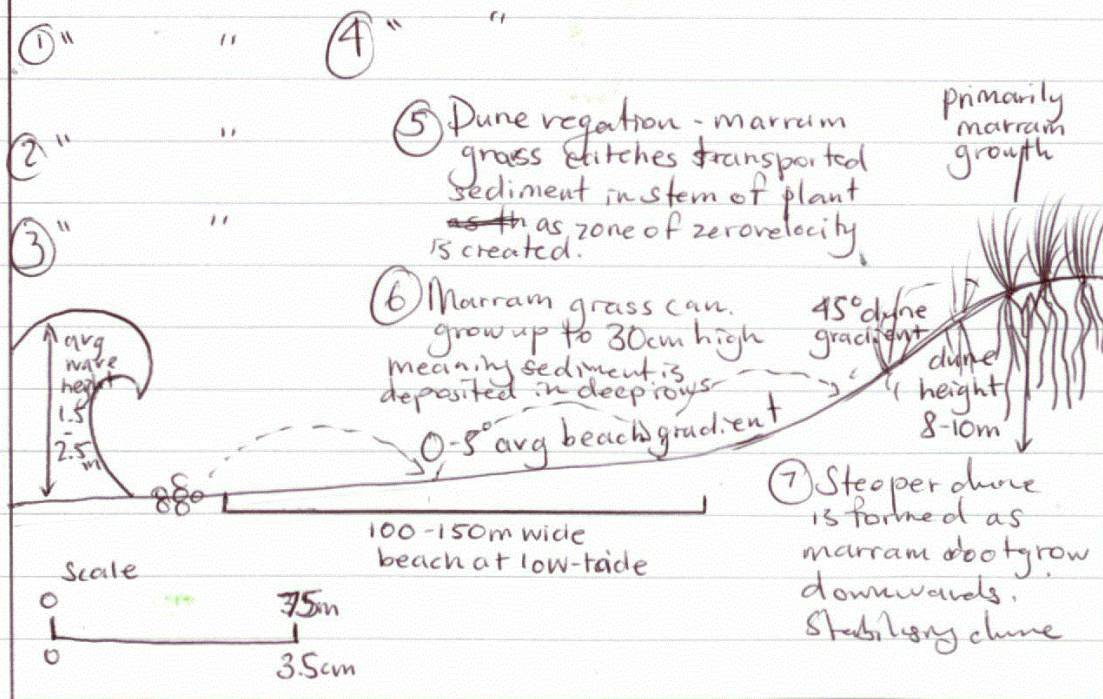 ① " "
④ " "
② " "
③ " "
⑤ Dune vegation - marram
grass stitches transported
sediment in stem of plant
as th as zone of zero velocity
is created.
primarily
marram
growth
⑥ Marram grass can
grow up to 30cm high
meaning sediment is
deposited in deep rows
45° dune
gradient
avg
wave
height
1.5
-
2.5
m
0-5° avg beach gradient
dune
height
8-10m
100-150m wide
beach at low-tide
⑦ Steeper dune
is formed as
marram root grow
downwards.
Stabilising dune
Scale
0 75m
0 3.5cm